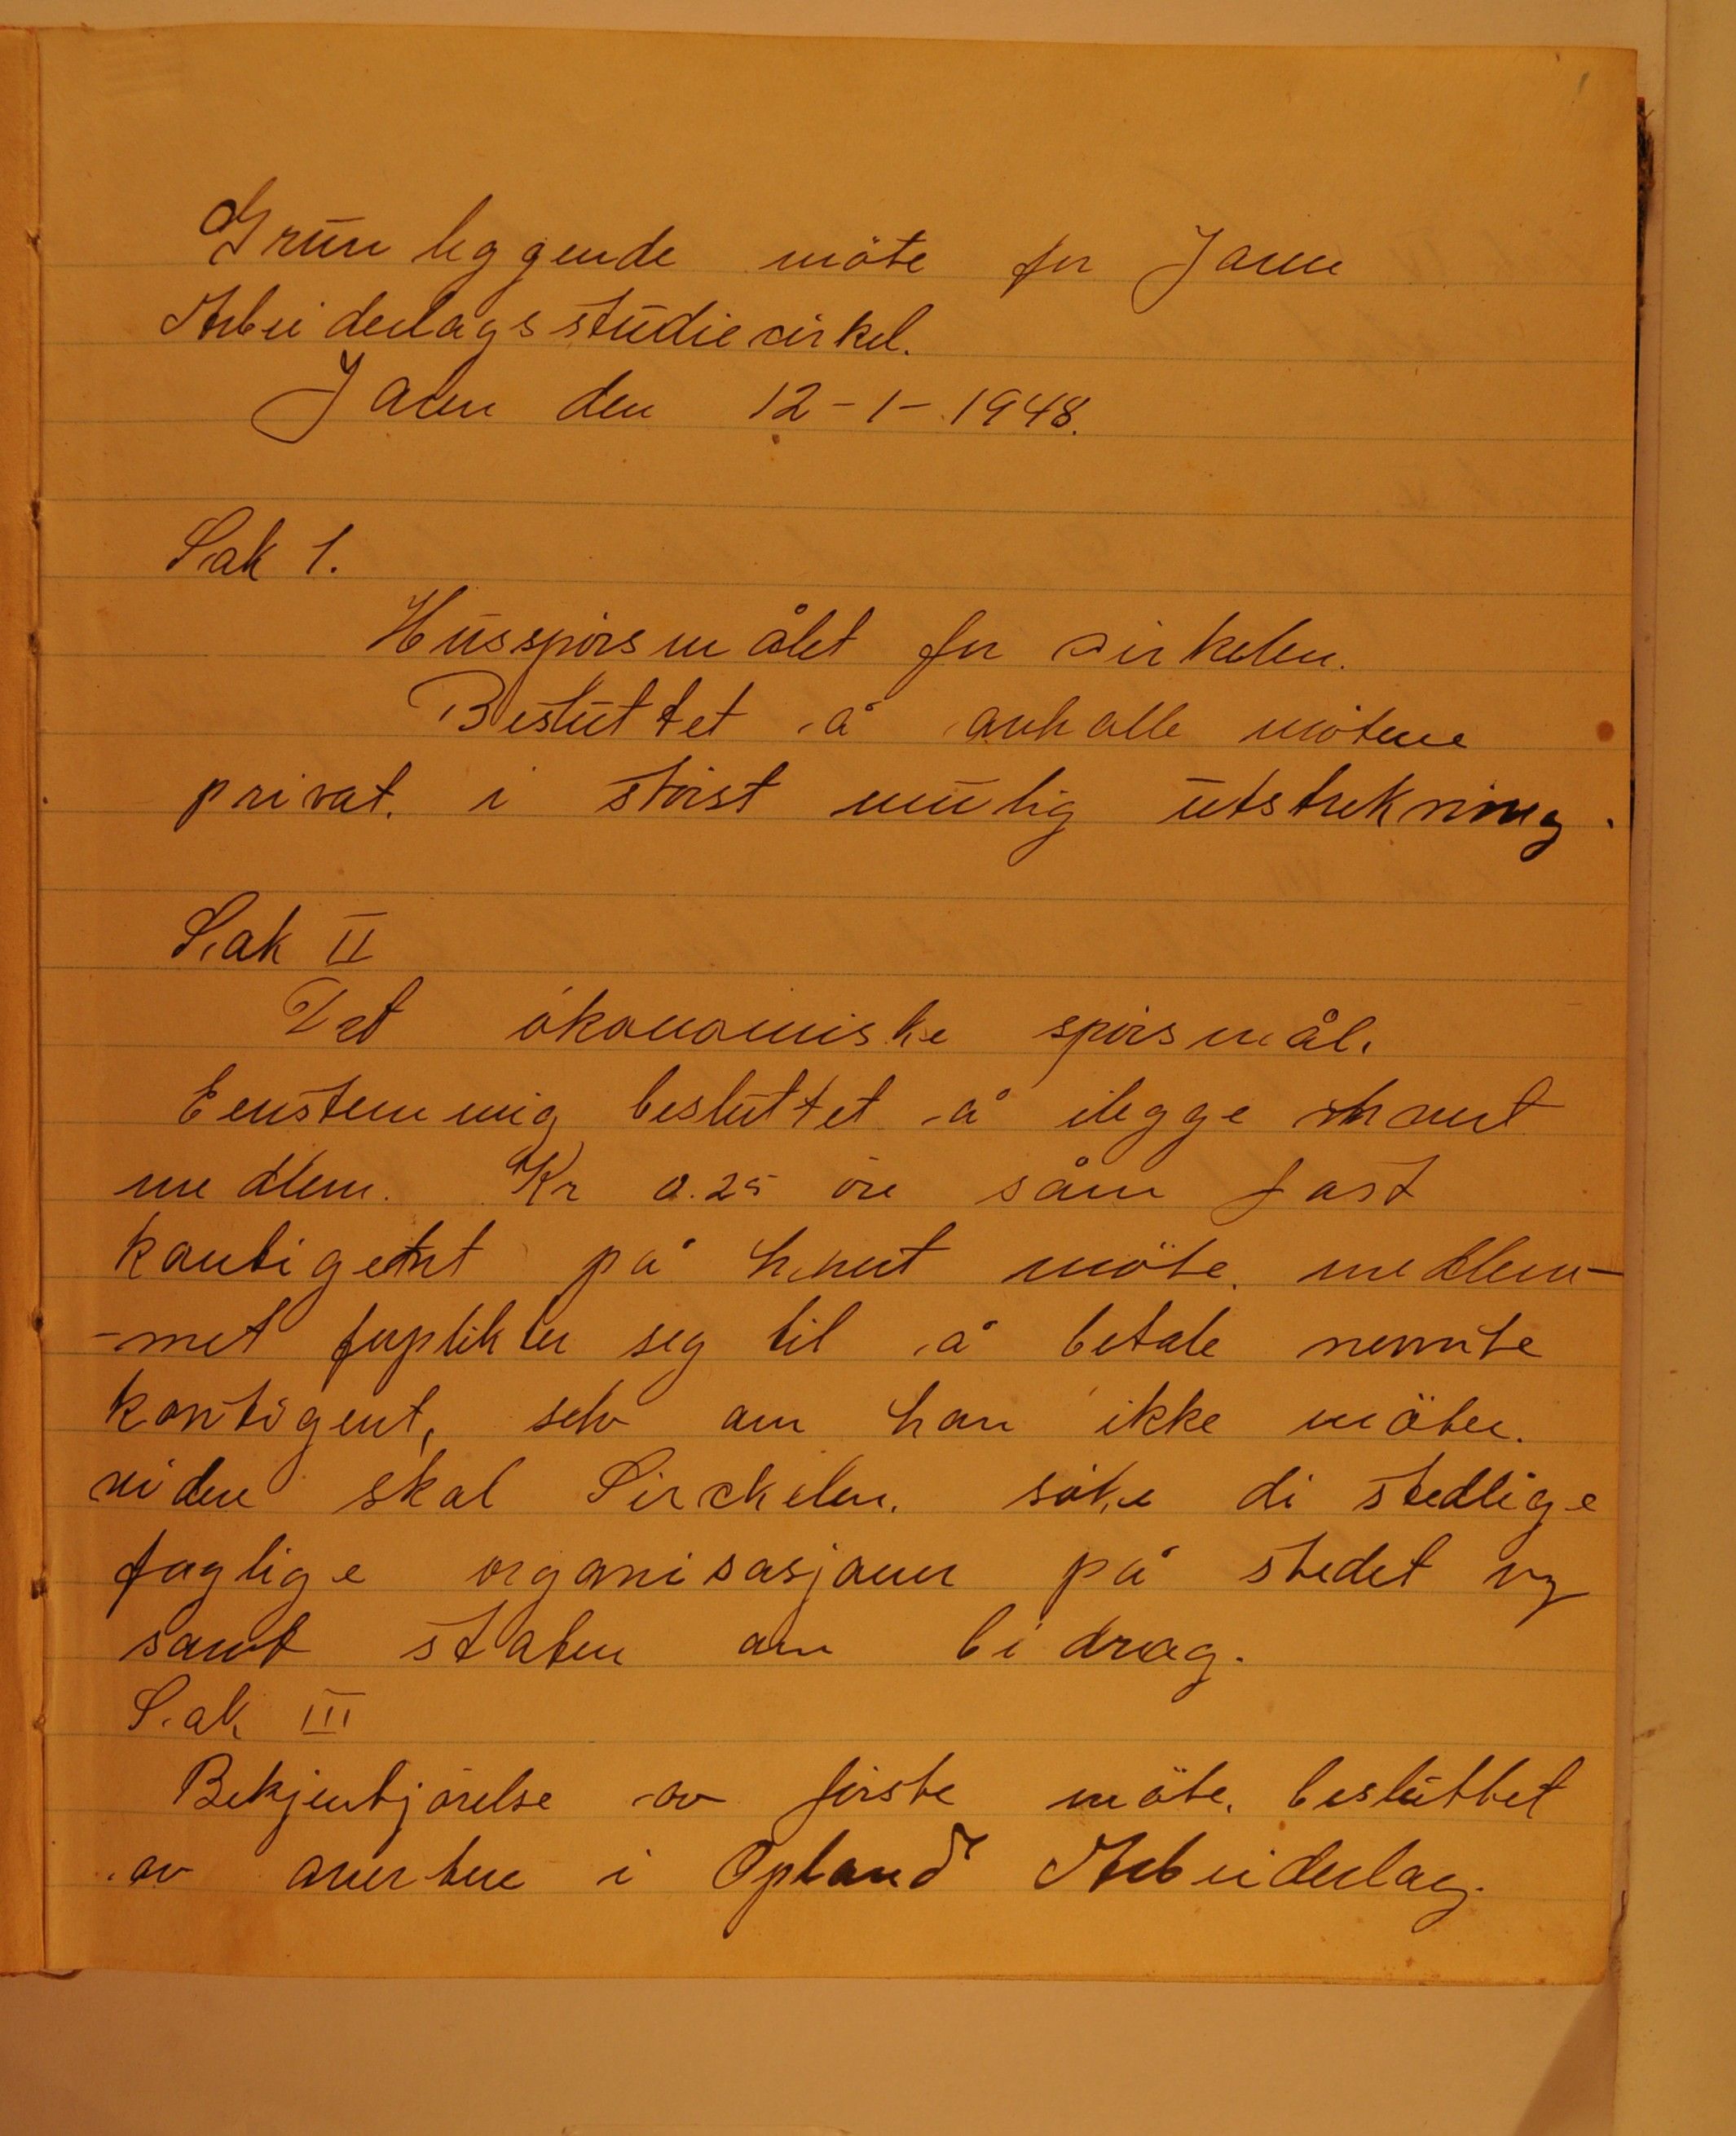 Grunleggende möte for Jaren
Arbeiderlags studiesirkel.
Jaren den 12-1-1948.
Sak 1.
Husspörsmålet for sirkelen.
Besluttet å anholle mötene
privat. i störst mulig utstrekning.
Sak II
Det ökonomiske spörsmål.
Eenstemmig besluttet å ilegge hvert
medlem. Kr 0.25 öre såm fast
kontigent på hvert möte. medlem-
-met forplikter seg til å betale nemnte
kontigent, selv om han ikke möter.
viden skal Sirckelen. söke di stedlige
faglige organisasjoner på stedet og
samt staten om bidrag.
Sak III
Bekjentjörelse av förste möte. besluttet
av avertere i Opland Arbeiderlag.